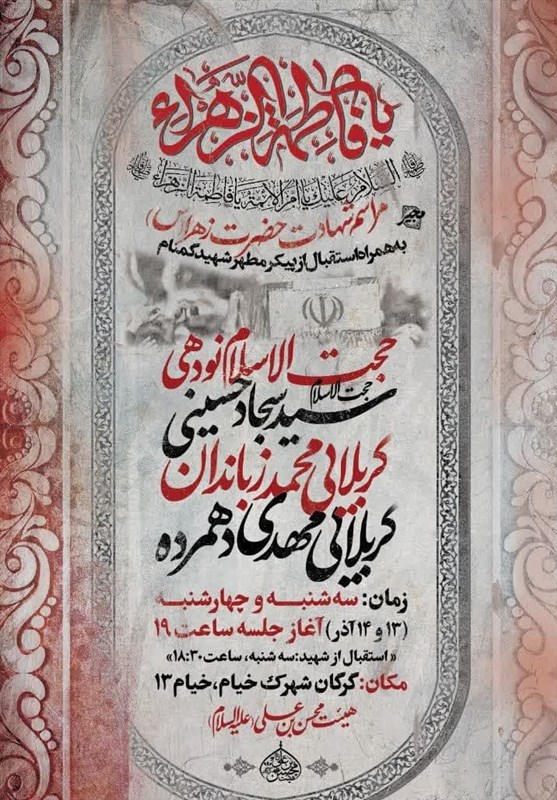 یا فاطمة الزهراء
السلام علیک یا ام الائمة یا فاطمة الزهراء
مراسم شهادت حضرت زهرا(س)
به همراه استقبال از پیکر مطهر شهید گمنام
حجت الاسلام نودهی
حجت الاسلام
سید سجاد حسینی
کربلایی محمد زباندان
کربلایی مهدی دهمرده
زمان: سه شنبه و چهارشنبه
(۱۳ و ۱۴ آذر) آغاز جلسه ساعت ۱۹
« استقبال از شهید: سه شنبه، ساعت ۱۸:۳۰»
مکان: گرگان شهرک خیام، خیام ۱۳
هیئت محسن بن علی (علیه السلام)